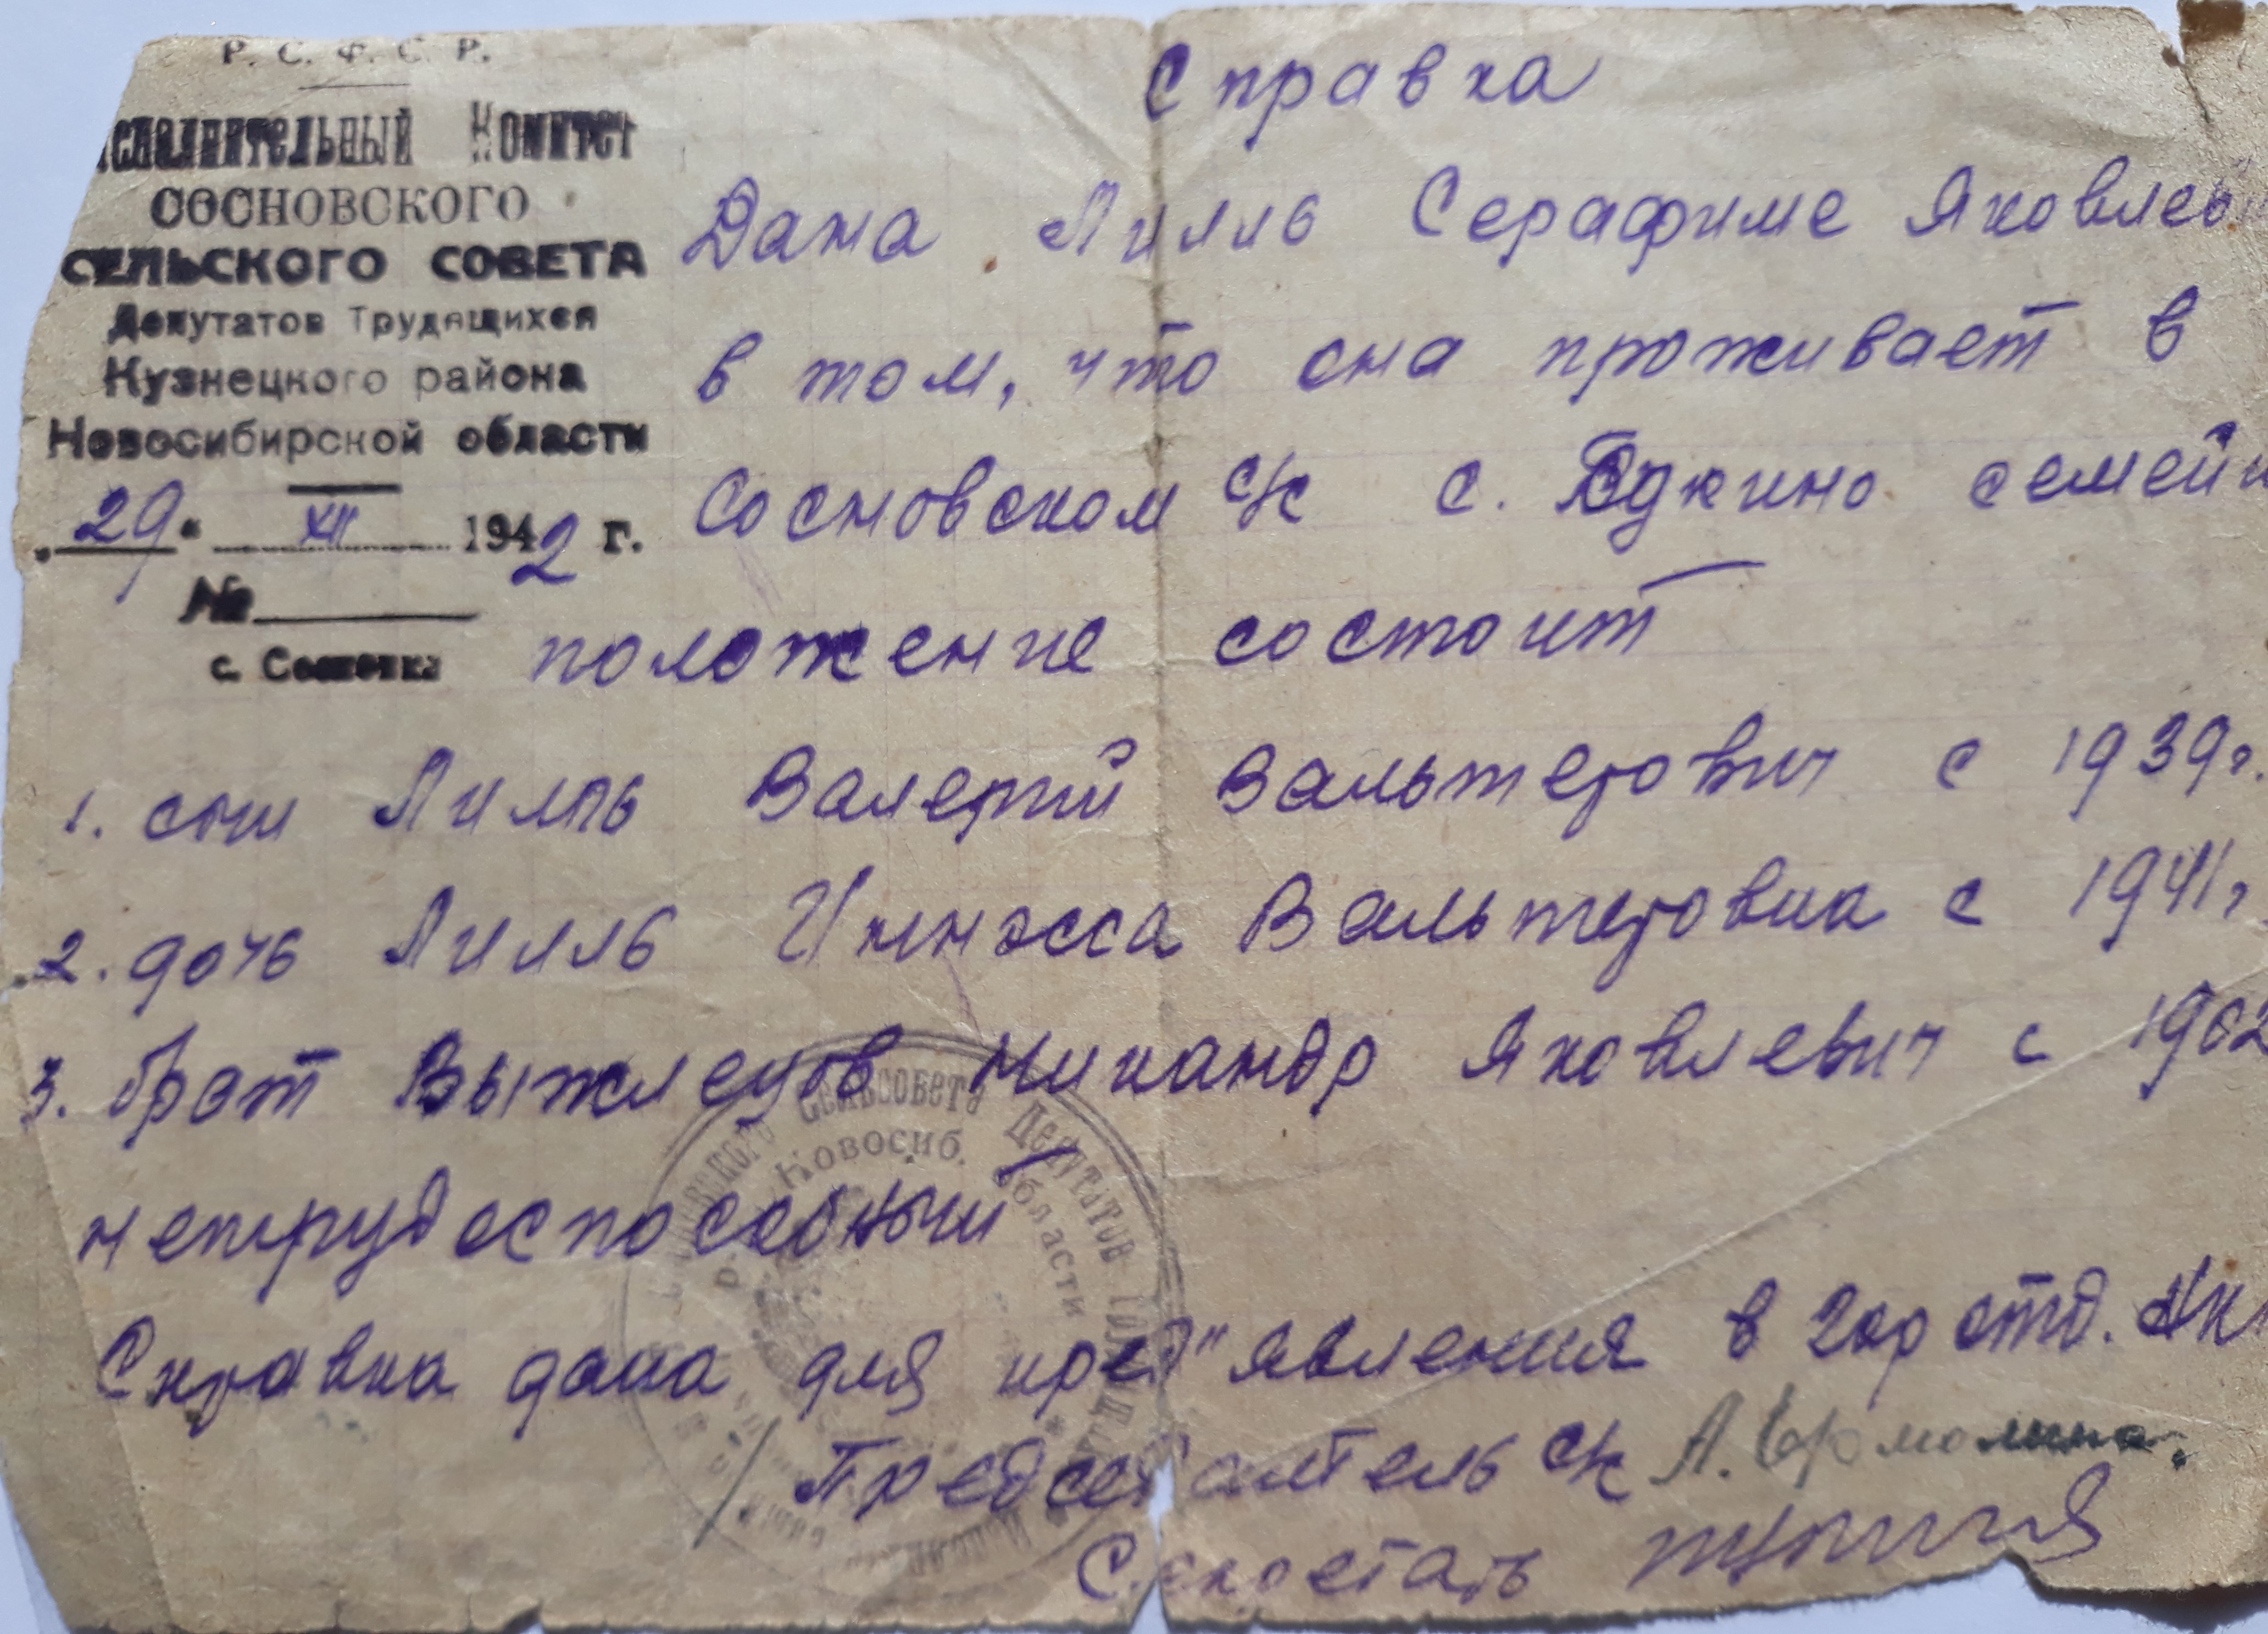 Р. С. Ф. С. Р.
сполнительный Комитет
СОСНОВСКОГО
СЕЛЬСКОГО СОВЕТА
Депутатов Трудящихся
Кузнецкого района
Новосибирской области
29 XII 1942 г.
№
с. Сосновка
Справка
Дана Лилль Серафиме Яковлев
в том, что она проживает в
Сосновском с/с с. семейн
положение состоит
1. сын Лилль Валерий Вальтерович с 1939г.
2. дочь Лилль Иннэсса Вальтеровна с 1941г
3. брат Выжлецов Никандр Яковлевич с 1902
нетрудоспособный
Справка дана для пред"явления в Гор отд.
Председатель с/с А. Ермолина
Секретарь
Сельсовета Депутатов
Новосиб. области